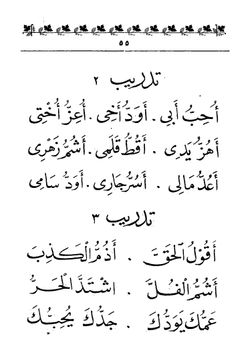 ٥٥
تدريب ٢
أُحِبُّ أَبِي . أَوَدُّ أَخِي . أُعِزُّ أُخْتِي
أَهُزُّ يَدِي . أَقُطُّ قَلَمِي . أَشُمُّ زَهْرِي
أَعُدُّ مَالِي . أَسُرُّ جَارِي . أَوَدُّ سَامِي
تدريب ٣
أَقُولُ الْحَقَّ . أَذُمُّ الْكَذِبَ
أَشُمُّ الْفُلَّ . اشْتَدَّ الْحَرُّ
عَمُّكَ يَوَدُّكَ . جَدُّكَ يُحِبُّكَ